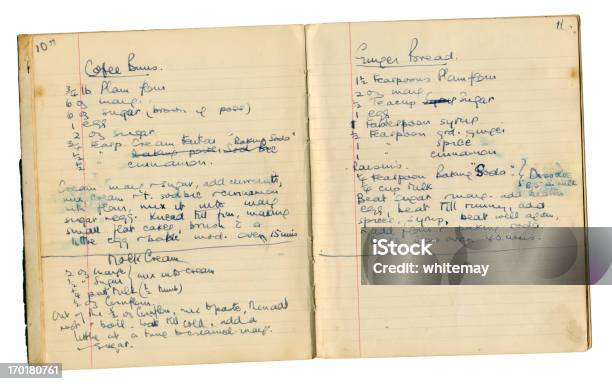 10
Coffee Buns.
3/4 lb Plain flour
6 oz marg.
6 oz sugar (brown if poss)
1 egg
2 oz sugar
Teasp. Cream Tartar "Baking Soda"
cinnamon.
Cream marg + sugar, add currants,
mix cream t. sod bic + cinnamon
into flour, mix it into marg
sugar + egg. Knead till firm, making
small flat cakes, brush a
little egg + bake mod. oven 15 mins
Mock Cream
2 oz marg } mix into cream
" sugar
1/4 pint milk (1/2 tumb)
oz Cornflour
Out of the 1/2 oz cornflour, mix to paste, then add
+ boil. till cold, add a
little at a time to creamed marg.
+ sugar.
11.
Ginger Bread.
1 1/2 teaspoons Plain flour
2 oz marg
1/2 Teacup sugar
1 egg
1 Tablespoon syrup
1/2 Teaspoon grd. ginger
1 " spice
1 " cinnamon
Raisins.
Teaspoon baking Soda
1/4 cup milk
Beat sugar + marg. add
egg, beat till runny, add
spice, syrup, beat well again,
add flour + baking soda
oven 40 mins.
iStock
Credit: whitemay
170180761